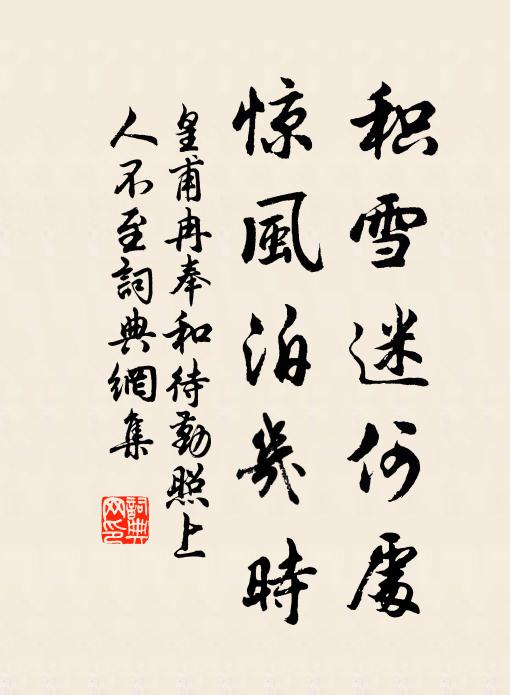 积雪迷何處
惊風泊幾時
皇甫冉奉和待勤照上
人不至詞典網集
詞典
网印